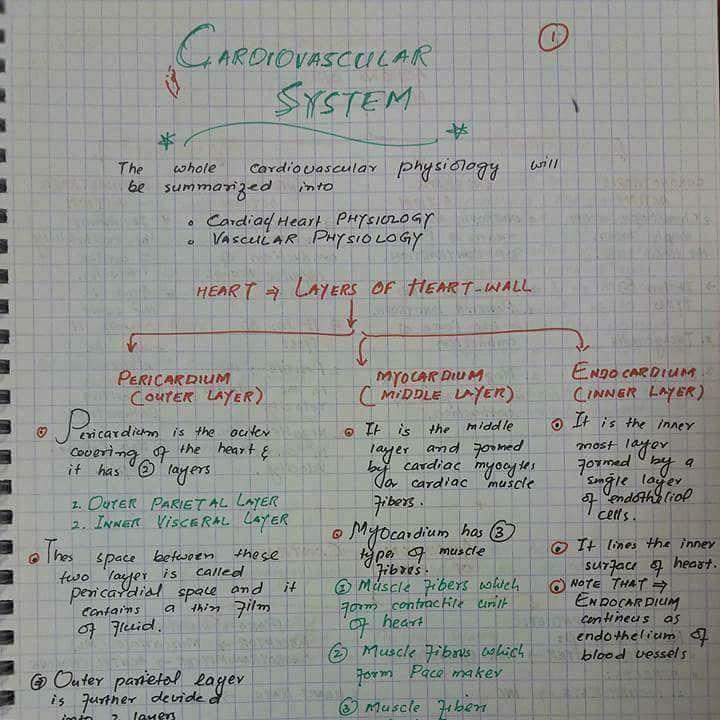 1
CARDIOVASCULAR
SYSTEM
The whole cardiovascular physiology will
be summarized into
• Cardiac/Heart PHYSIOLOGY
• VASCULAR PHYSIOLOGY
HEART ⇒ LAYERS OF HEART-WALL
PERICARDIUM
(OUTER LAYER)
Pericardium is the outer
covering of the heart &
it has 2 layers
1. OUTER PARIETAL LAYER
2. INNER VISCERAL LAYER
Thes space between these
two layer is called
pericardial space and it
contains a thin Film
of Fluid.
Outer parietal layer
is Further devided
into 2 layers
MYOCARDIUM
(MIDDLE LAYER)
It is the middle
layer and Formed
by cardiac myocytes
or cardiac muscle
Fibers.
Myocardium has 3
types of muscle
Fibres.
1 Muscle Fibers which
Form contractile unit
of heart
2 Muscle Fibrus which
Form Pace maker
3 Muscle Fibers
ENDOCARDIUM
(INNER LAYER)
It is the inner
most layer
Formed by a
single layer
of endothelial
cells.
It lines the inner
surface of heart.
NOTE THAT ⇒
ENDOCARDIUM
contineus as
endothelium of
blood vessels